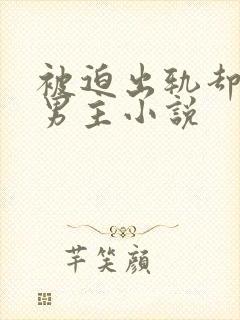 被迫出轨却
男主小說
芊笑顔